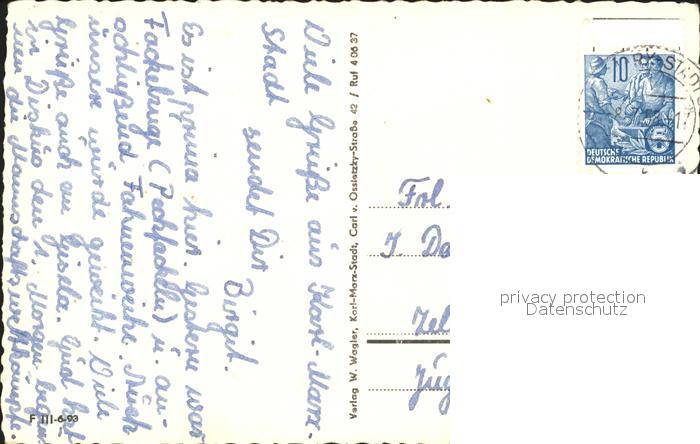 Viele Grüße aus Karl-Marx-
Stadt
sendet Dir
Birgit.
Es ist prima hier. Gestern war
Fackelzug (Pechfackeln) u. an-
schließend Fahnenweihe. Auch
unsere wurde geweiht. Viele
Grüße auch an Gisela. Gurd hat
in Diskus den 1. Morgen
nen die Mannschaftswettkämpfe
Verlag W. Wagler, Karl-Marx-Stadt, Carl v. Ossietzky-Straße 42 / Ruf 4 06 37
F III-6-93
10
DEUTSCHE
DEMOKRATISCHE REPUBLIK
Frl.
privacy protection
Datenschutz